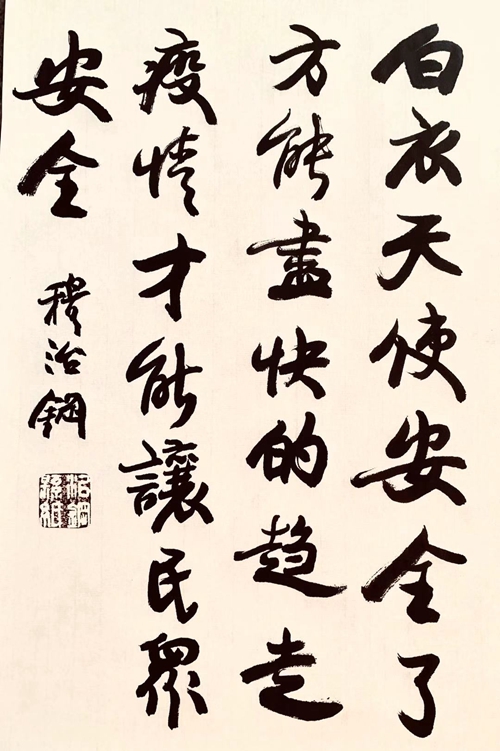 白衣天使安全了
方能盡快的趋走
疫情才能讓民眾
安全
穆治鋼